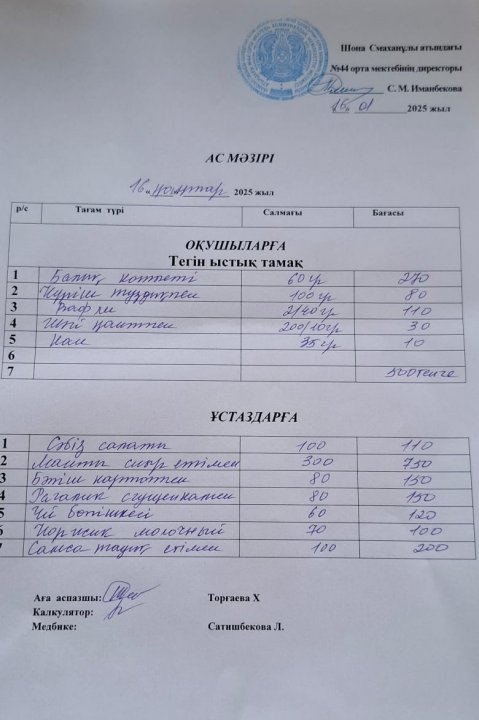 Шона Смаханұлы атындағы
№44 орта мектебінің директоры
С. М. Иманбекова
16. 01 2025 жыл
АС МӘЗІРІ
16 қаңтар 2025 жыл
р/с Тағам түрі Салмағы Бағасы
ОҚУШЫЛАРҒА
Тегін ыстық тамақ
1 Балық котлеті 60гр 270
2 Күріш тұздықпен 100гр 80
3 Вафли 2/40гр 110
4 Шәй қантпен 200/10гр 30
5 Нан 35гр 10
6
7 500теңге
ҰСТАЗДАРҒА
1 Сәбіз салаты 100 110
2 Манты сиыр етімен 300 750
3 Бәтіш картоппен 80 150
4 Рагалик сгущенкамен 80 150
5 Үй бәлішкесі 60 120
6 Коржик молочный 70 100
Самса тауық етімен 100 200
Аға аспазшы: Торғаева Х
Калкулятор:
Медбике: Сатишбекова Л.